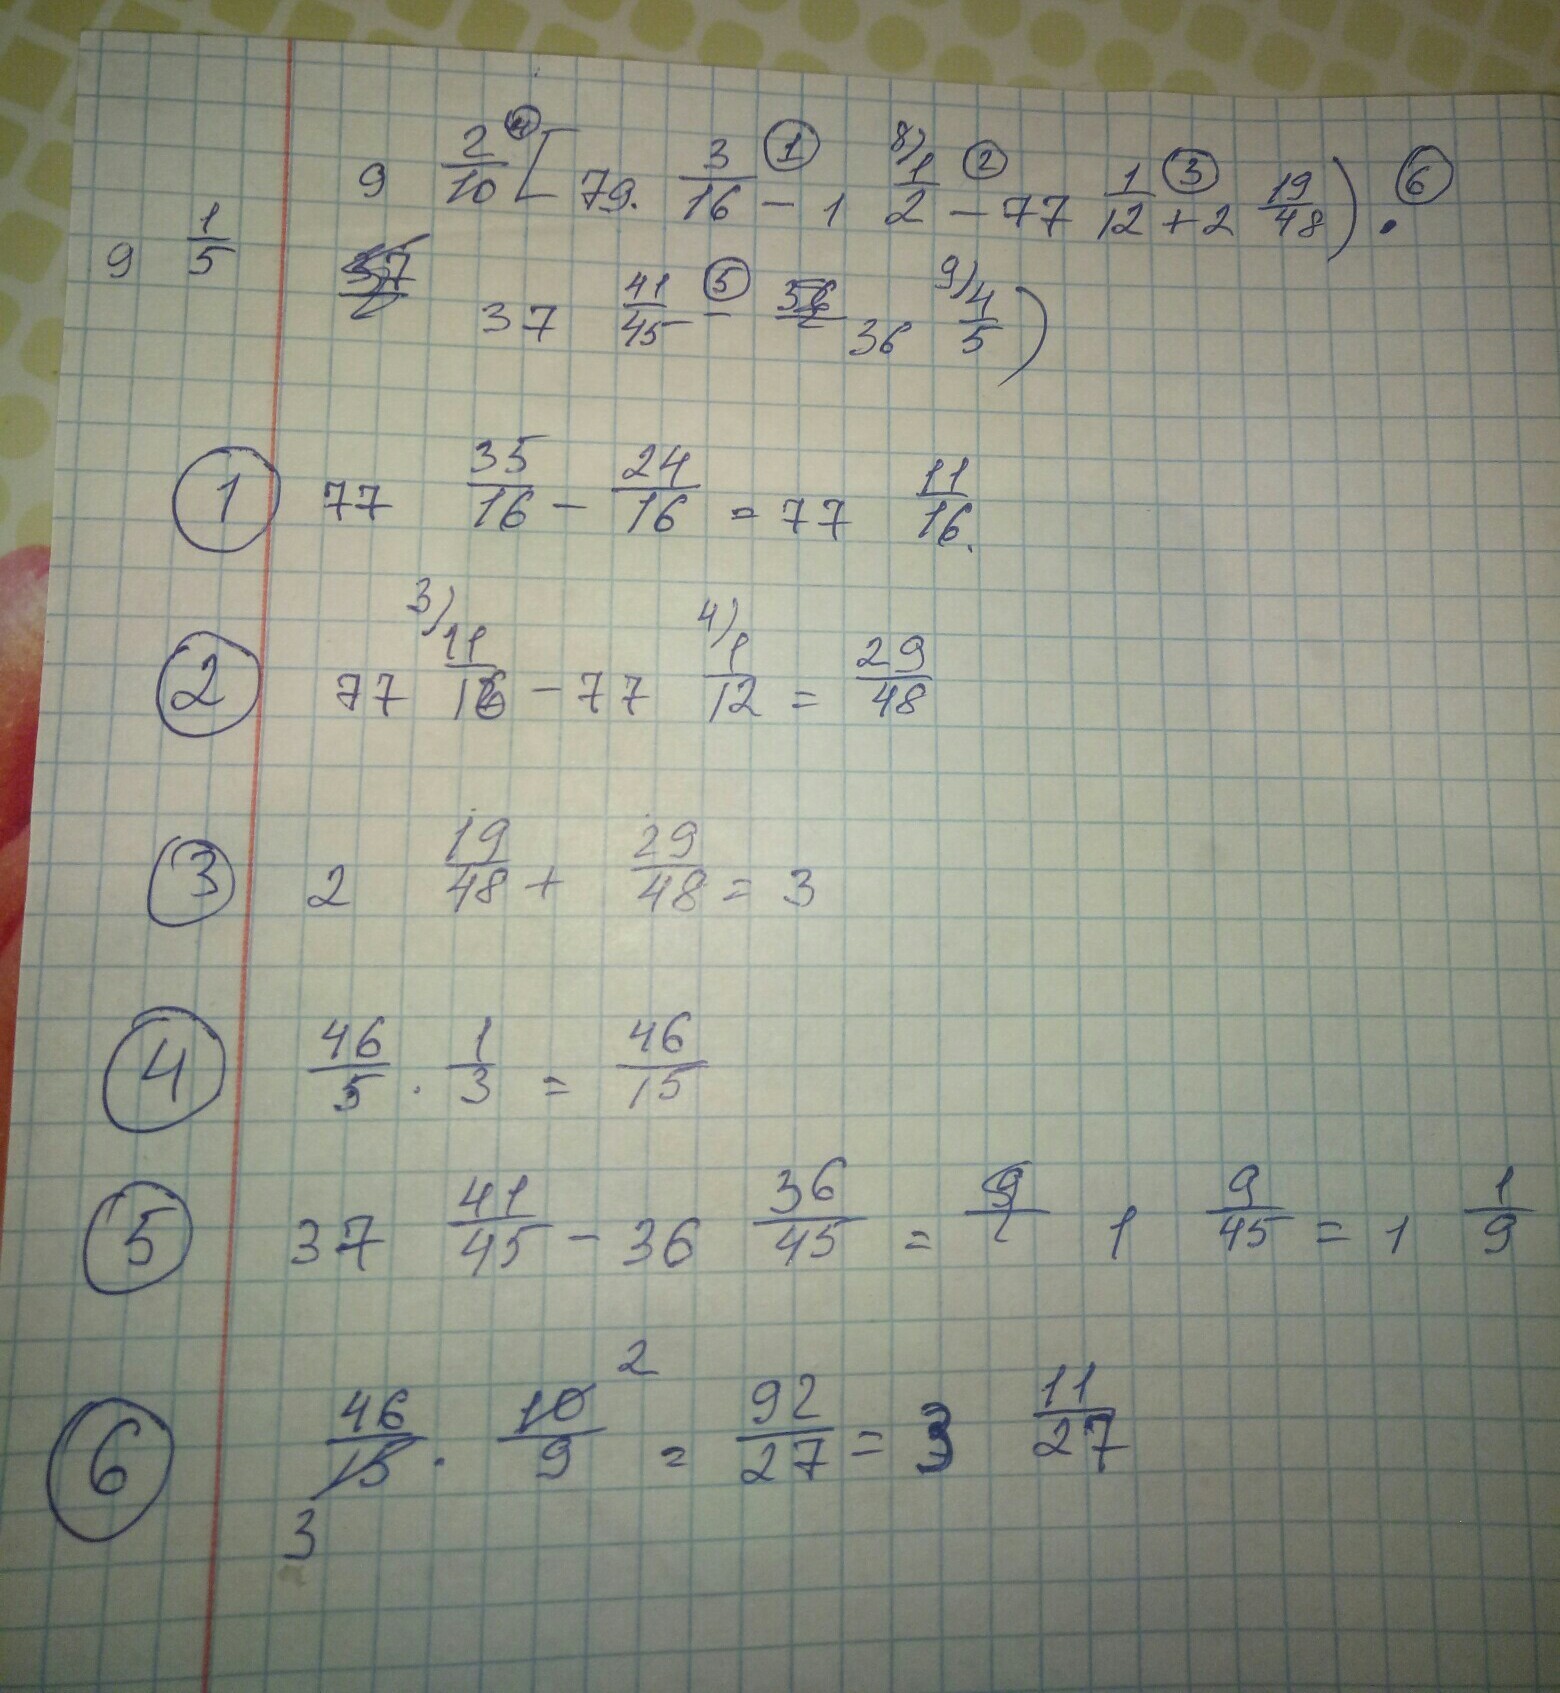 9 2/10 ④ [ 79. 3/16 ① - 1 8) 1/2 ② - 77 1/12 ③ + 2 19/48 ) . ⑥
9 1/5
37 41/45 ⑤ - 36 9) 4/5 )
① 77 35/16 - 24/16 = 77 11/16.
② 77 3) 11/16 - 77 4) 1/12 = 29/48
③ 2 19/48 + 29/48 = 3
④ 46/5 . 1/3 = 46/15
⑤ 37 41/45 - 36 36/45 = 1 9/45 = 1 1/9
⑥ 46/15 . 10/9 = 92/27 = 3 11/27
2
3